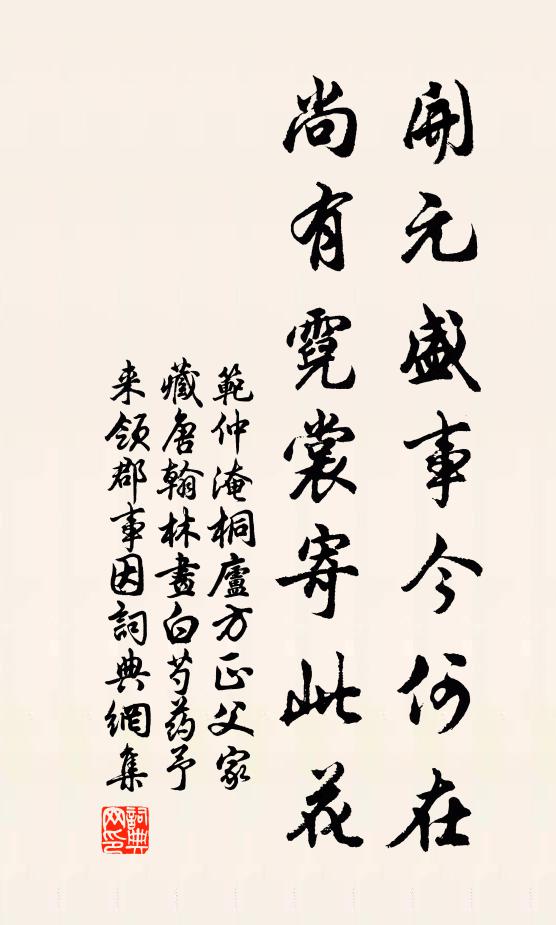 開元盛事今何在
尚有霓裳寄此花
範仲淹桐廬方正父家
藏唐翰林畫白芍药予
来領郡事因詞典網集
詞典网印